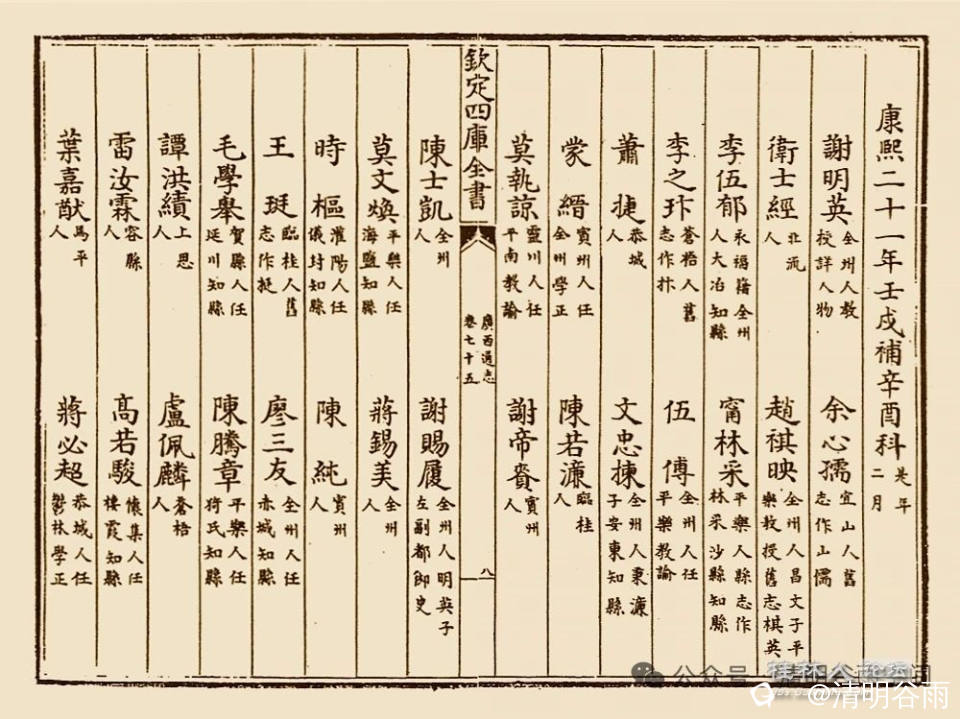 康熙二十一年壬戌補辛酉科是年二月
謝明英全州人教授詳人物 余心孺宜山人舊志作山儒
衛士經北流人 趙祺映全州人昌文子平樂教授舊志棋英
李伍郁永福籍全州人大冶知縣 甯林采平樂人縣志作林采沙縣知縣
李之玣蒼梧人舊志作抃 伍傅全州人任平樂教諭
蕭捷恭城人 文忠揀全州人秉濂子安東知縣
蒙縉賓州人任全州學正 陳若濂臨桂人
莫執諒靈川人任平南教諭 謝帝賚賓州人
欽定四庫全書 廣西通志卷七十五 八
陳士凱全州人 謝賜履全州人明英子左副都御史
莫文煥平樂人任海鹽知縣 蔣錫美全州人
時樞灌陽人任儀封知縣 陳純賓州人
王珽臨桂人舊志作挺 廖三友全州人任赤城知縣
毛學舉賀縣人任延川知縣 陳騰章平樂人任猗氏知縣
譚洪績上思人 盧佩麟蒼梧人
雷汝霖容縣人 高若駿懷集人任棲霞知縣
葉嘉猷馬平人 蔣必超恭城人任鬱林學正
公众号
桂林人论坛
@清明谷雨